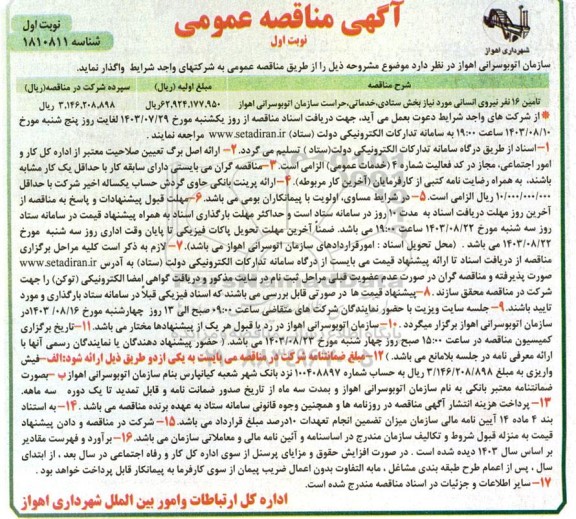 آگهی مناقصه عمومی
نوبت اول
نوبت اول
شناسه ۱۸۱۰۸۱۱
شهرداری اهواز
سازمان اتوبوسرانی اهواز در نظر دارد موضوع مشروحه ذیل را از طریق مناقصه عمومی به شرکتهای واجد شرایط واگذار نماید.
شرح مناقصه مبلغ اولیه (ریال) سپرده شرکت در مناقصه(ریال)
تامین ۱۶ نفر نیروی انسانی مورد نیاز بخش ستادی،خدماتی،حراست سازمان اتوبوسرانی اهواز ۶۲,۹۲۴,۱۷۷,۹۵۰ریال ۳,۱۴۶,۲۰۸,۸۹۸ ریال
*از شرکت های واجد شرایط دعوت بعمل می آید، جهت دریافت اسناد مناقصه از روز یکشنبه مورخ ۱۴۰۳/۰۷/۲۹ لغایت روز پنج شنبه مورخ
۱۴۰۳/۰۸/۱۰ ساعت ۱۹:۰۰ به سامانه تدارکات الکترونیکی دولت (ستاد) www.setadiran.ir مراجعه نمایند .
۱-اسناد از طریق درگاه سامانه تدارکات الکترونیکی دولت(ستاد) تسلیم می گردد. ۲- ارائه اصل برگ تعیین صلاحیت معتبر از اداره کل کار و
امور اجتماعی، مجاز در کد فعالیت شماره ۴ (خدمات عمومی) الزامی است. ۳-مناقصه گران می بایستی دارای سابقه کار با حداقل یک کار مشابه
باشند، به همراه رضایت نامه کتبی از کارفرمایان (آخرین کار مربوطه). ۴-ارائه پرینت بانکی حاوی گردش حساب یکساله اخیر شرکت با حداقل
۱۰/۰۰۰/۰۰۰/۰۰۰ ریال الزامی است. ۵-در شرایط مساوی، اولویت با پیمانکاران بومی می باشد. ۶-مهلت قبول پیشنهادات و پاسخ به مناقصه از
آخرین روز مهلت دریافت اسناد به مدت ۱۰ روز در سامانه ستاد است و حداکثر مهلت بارگذاری اسناد به همراه پیشنهاد قیمت در سامانه ستاد
روز سه شنبه مورخ ۱۴۰۳/۰۸/۲۲ ساعت ۱۹:۰۰ می باشد. ضمناً آخرین مهلت تحویل پاکات فیزیکی تا پایان وقت اداری روز سه شنبه مورخ
۱۴۰۳/۰۸/۲۲ می باشد . (محل تحویل اسناد : امورقراردادهای سازمان اتوبوسرانی اهواز می باشد). ۷-لازم به ذکر است کلیه مراحل برگزاری
مناقصه از دریافت اسناد تا ارائه پیشنهاد قیمت می بایست از درگاه سامانه تدارکات الکترونیکی دولت (ستاد) به آدرس www.setadiran.ir
صورت پذیرفته و مناقصه گران در صورت عدم عضویت قبلی مراحل ثبت نام در سایت مذکور و دریافت گواهی امضا الکترونیکی (توکن) را جهت
شرکت در مناقصه محقق سازند . ۸-پیشنهاد قیمت ها در صورتی قابل بررسی می باشند که اسناد فیزیکی قبلا در سامانه ستاد بارگذاری و مورد
تایید باشند. ۹- جلسه سایت ویزیت با حضور نمایندگان شرکت های متقاضی ساعت ۰۹:۰۰ صبح الی ۱۳ روز چهارشنبه مورخ ۱۴۰۳/۰۸/۱۶ در
سازمان اتوبوسرانی اهواز برگزار میگردد . ۱۰-سازمان اتوبوسرانی اهواز در رد یا قبول هر یک از پیشنهادها مختار می باشد. ۱۱-تاریخ برگزاری
کمیسیون مناقصه در ساعت ۱۵:۰۰ صبح روز چهار شنبه مورخ ۱۴۰۳/۰۸/۲۳ می باشد. ( حضور پیشنهاد دهندگان یا نمایندگان رسمی آنها با
ارائه معرفی نامه در جلسه بلامانع می باشد). ۱۲- مبلغ ضمانتنامه شرکت در مناقصه می بایست به یکی از دو طریق ذیل ارائه شود:الف-فیش
واریزی به مبلغ ۳/۱۴۶/۲۰۸/۸۹۸ ریال به حساب شماره ۱۰۰۴۰۸۸۹۷ نزد بانک شهر شعبه کیانپارس بنام سازمان اتوبوسرانی اهواز ب-بصورت
ضمانتنامه معتبر بانکی به نام سازمان اتوبوسرانی اهواز و بمدت سه ماه از تاریخ صدور ضمانت نامه و قابل تمدید تا یک دوره سه ماهه.
۱۳-پرداخت هزینه انتشار آگهی مناقصه در روزنامه ها و همچنین وجوه قانونی سامانه ستاد به عهده برنده مناقصه می باشد. ۱۴-به استناد
بند ۴ ماده ۱۴ آیین نامه مالی سازمان میزان تضمین انجام تعهدات ۱۰درصد مبلغ قرارداد می باشد. ۱۵-شرکت در مناقصه و دادن پیشنهاد
قیمت به منزله قبول شروط و تکالیف سازمان مندرج در اساسنامه و آئین نامه مالی و معاملاتی سازمان می باشد. ۱۶-برآورد و فهرست مقادیر
بر اساس سال ۱۴۰۳ دیده شده است . در صورت افزایش حقوق و مزایای پرسنل از سوی اداره کل کار و رفاه اجتماعی در سال بعد ، از ابتدای
سال ، پس از اعمام طرح طبقه بندی مشاغل ، مابه التفاوت بدون اعمال ضریب پیمان از سوی کارفرما به پیمانکار قابل پرداخت خواهد بود .
۱۷-سایر اطلاعات و جزئیات در اسناد مناقصه مندرج شده است.
اداره کل ارتباطات وامور بین الملل شهرداری اهواز